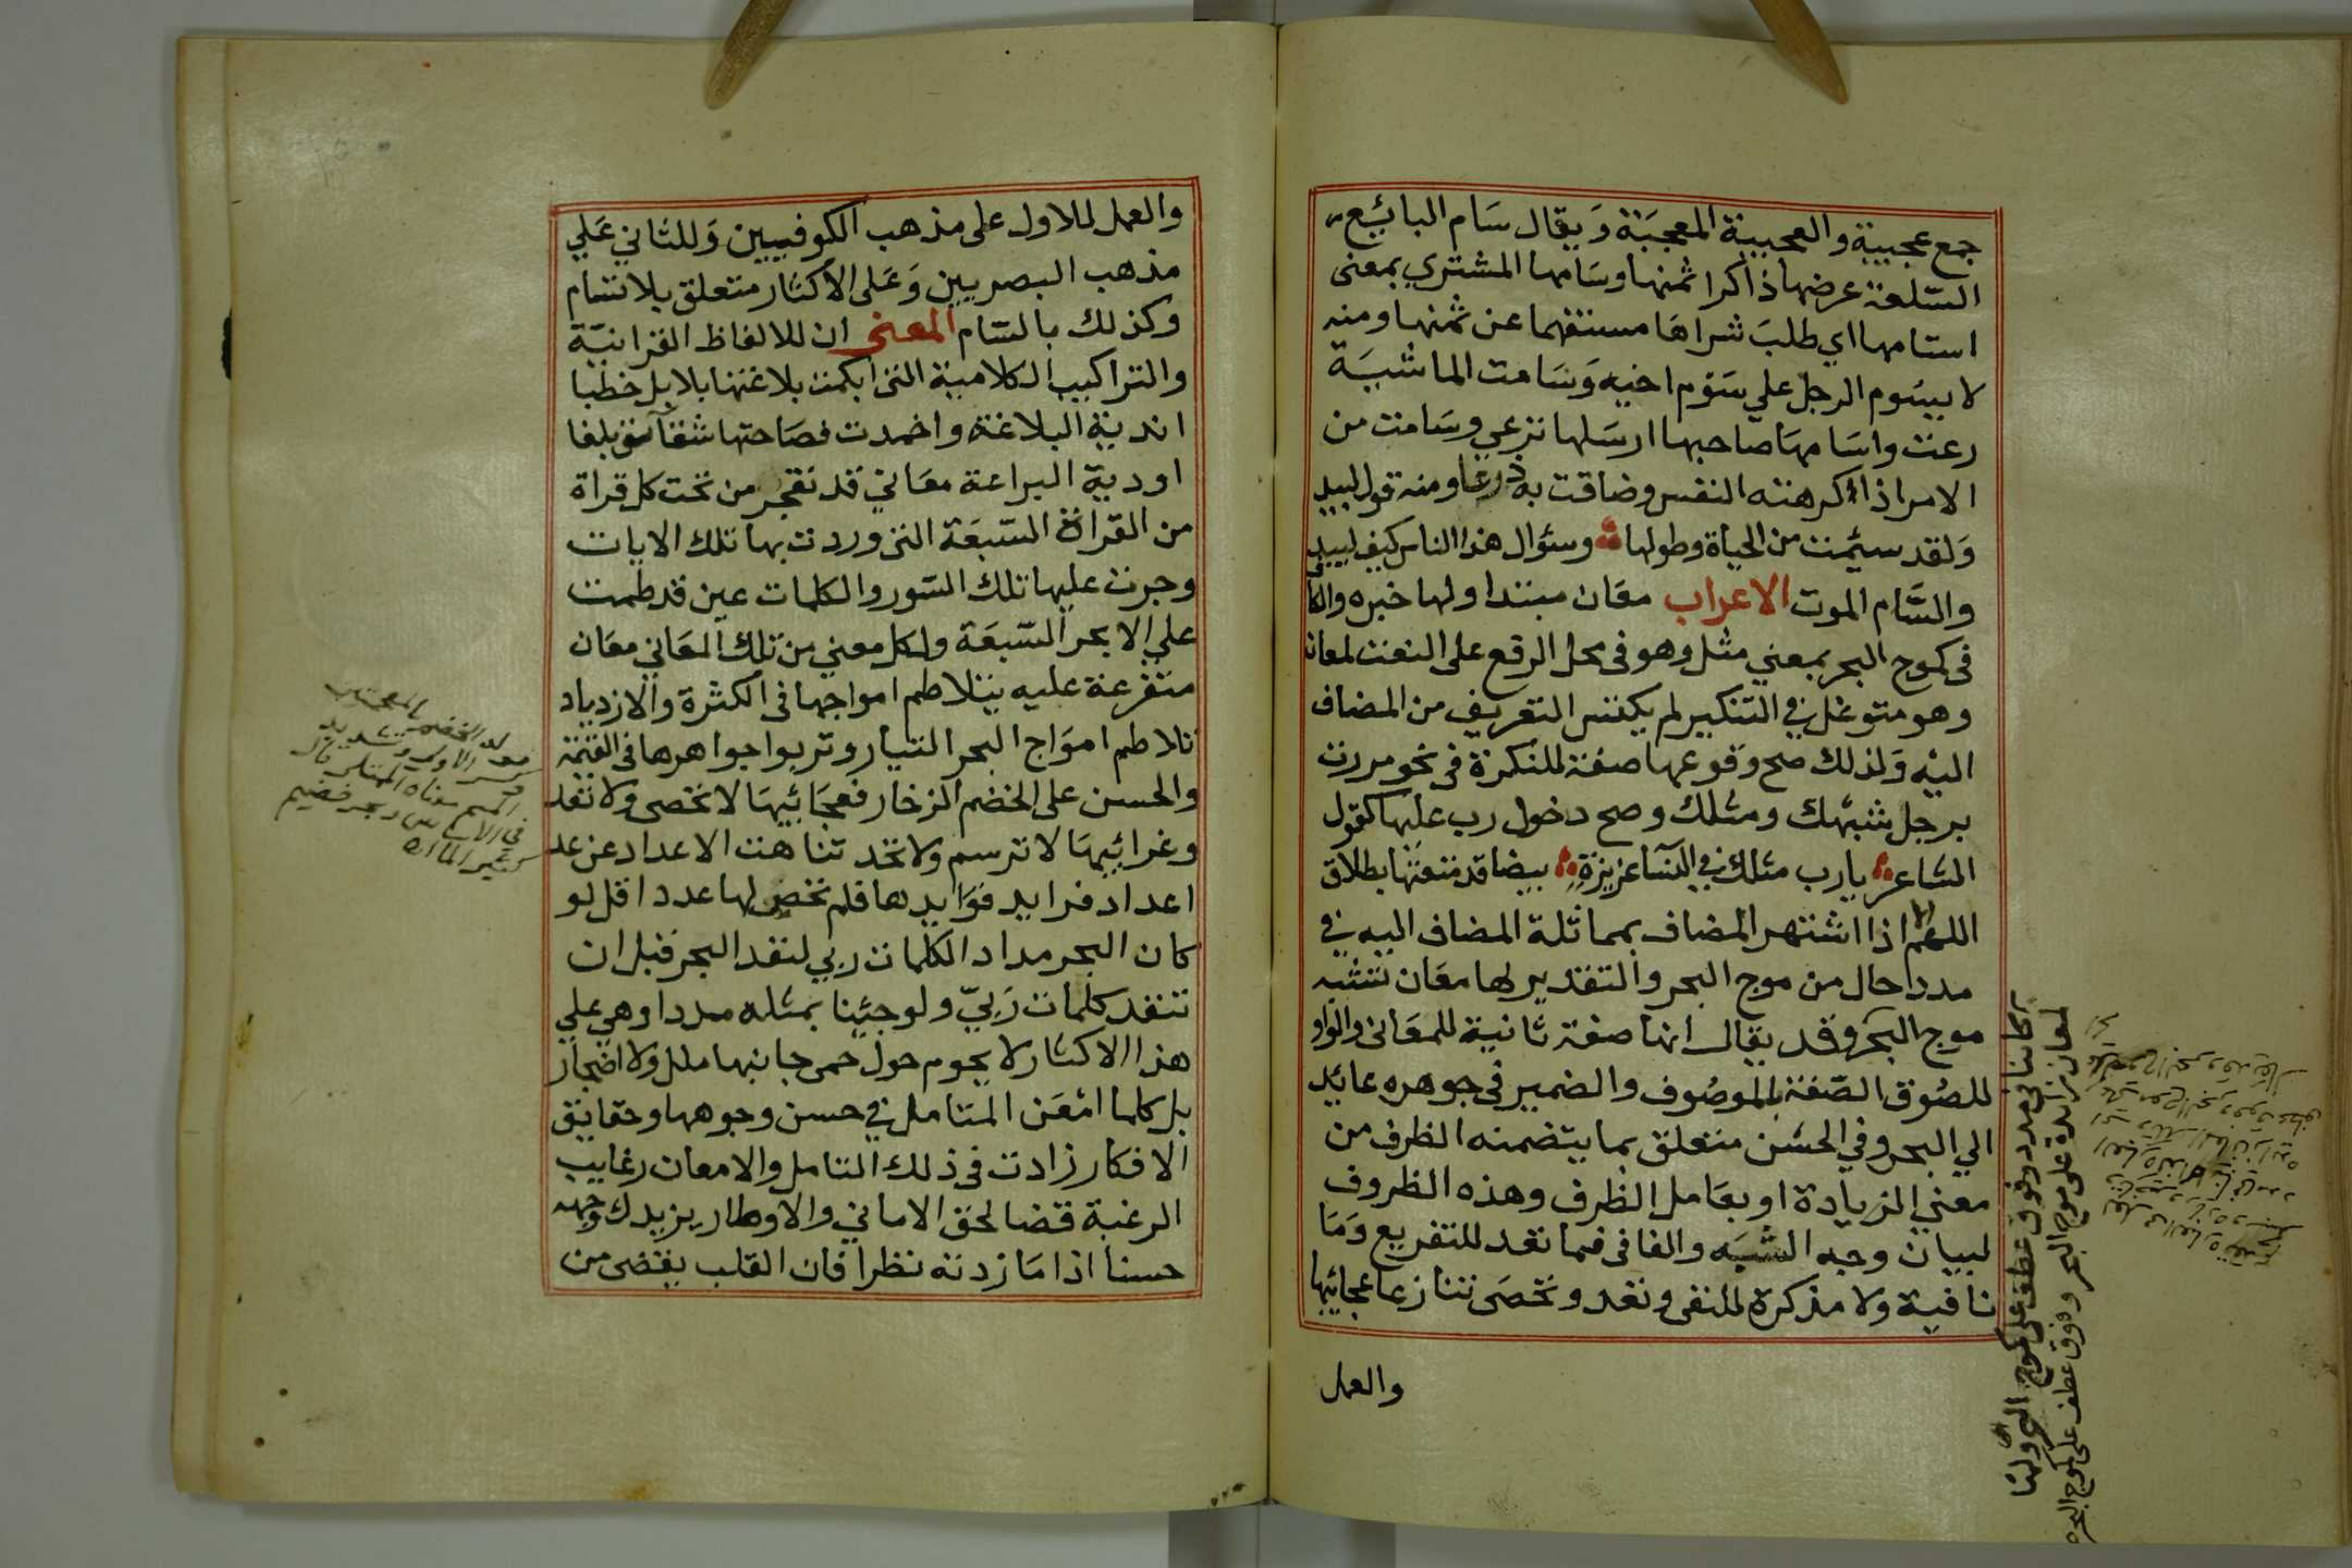 جمع عجيبة والعجيبة المعجبة ويقال سام البايع
السلعة عرضها ذاكرا ثمنها وسامها المشتري بمعنى
استامها اي طلب شراها مستفهما عن ثمنها ومنه
لا يسوم الرجل علي سوم اخيه وسامت الماشية
رعت واسامها صاحبها ارسلها ترعي وسامت من
الامر اذا اكرهته النفس وضاقت به ذرعا ومنه قول لبيد
ولقد سئمت من الحياة وطولها وسئوال هذا الناس كيف لبيد
والسام الموت الاعراب معان مبتدا ولها خبره والكاف
فى كموج البحر بمعني مثل وهو فى محل الرفع على النعت لمعان
وهو متوغل في التنكير لم يكتس التعريف من المضاف
اليه ولذلك صح وقوعها صفة للنكرة فى نحو مررت
برجل شبهك ومثلك وصح دخول رب عليها كقول
الشاعر يا رب مثلك في النسا عزيزة بيضا قد متعتها بطلاق
اللهم الا اذا اشتهر المضاف بمماثلة المضاف اليه في
مدد حال من موج البحر والتقدير لها معان تشبه
موج البحر وقد يقال انها صفة ثانية للمعانى والواو
للصوق الصفة بالموصوف والضمير فى جوهره عايد
الي البحر وفي الحسن متعلق بما يتضمنه الظرف من
معني الزيادة او بعامل الظرف وهذه الظروف
لبيان وجه الشبه والفا فى فما تعد للتفريع وما
نافية ولا مذكرة للنفى وتعد وتحصى تنازعا عجائبها
والعمل
كائنا فى مدد وفوق عطف على كموج البحر ولها
لمعان زايدة على موج البحر وفوق عطف على كموج البحر
والعمل للاول على مذهب الكوفيين وللثاني علي
مذهب البصريين وعلى الاكثار متعلق بلا تسام
وكذلك بالسام المعنى ان للالفاظ القرانية
والتراكيب الكلامية التى ابكمت بلاغتها بلابل خطبا
اندية البلاغة واخمدت فصاحتها شقاشق بلغا
اودية البراعة معاني قد تفجر من تحت كل قراة
من القراة السبعة التى وردت بها تلك الايات
وجرت عليها تلك السور والكلمات عين قد طمت
علي الابحر السبعة ولكل معني من تلك المعاني معان
متفرعة عليه يتلاطم امواجها فى الكثرة والازدياد
تلاطم امواج البحر التيار وتربوا جواهرها فى القيمة
والحسن على الخضم الزخار فعجائبها لا تحصى ولا تعد
وغرائبها لا ترسم ولا تحد تناهت الاعداد عن عد
اعداد فرايد فوايدها فلم تحص لها عددا قل لو
كان البحر مداد الكلمات ربي لنفد البحر قبل ان
تنفد كلمات ربي ولو جئنا بمثله مددا وهي علي
هذا الاكثار لا يحوم حول حمى جانبها ملل ولا اضجار
بل كلما امعن المتامل في حسن وجوهها وحقايق
الافكار زادت فى ذلك التامل والامعان رغايب
الرغبة قضا لحق الاماني والاوطار يزيدك وجهه
حسنا اذا ما زدته نظرا فان القلب يقضى من